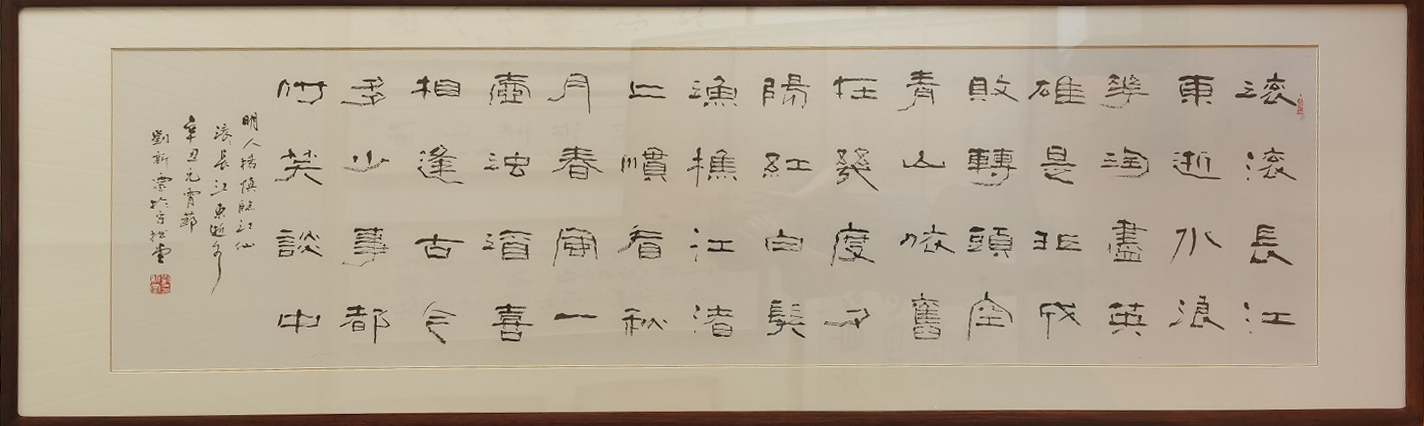 滚滚長江
東逝水浪
華淘盡英
雄是非成
敗轉頭空
青山依舊
在幾度夕
陽紅白髮
漁樵江渚
上慣看秋
月春風一
壺濁酒喜
相逢古今
多少事都
付笑談中
明人楊慎臨江仙
滚〻長江東逝水
辛丑元宵節
劉新雲於守拙堂